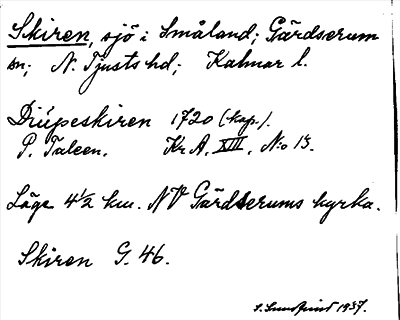 Skiren, sjö i Småland; Gärdserum
sn; N. Tjusts hd; Kalmar l.
Diúpeskiren 1720 (kop.).
P. Taleen. Kr A, XIII, No 13.
Läge 4½ km. NV Gärdserums kyrka.
Skiren G. 46.
S. Sundqvist 1937.